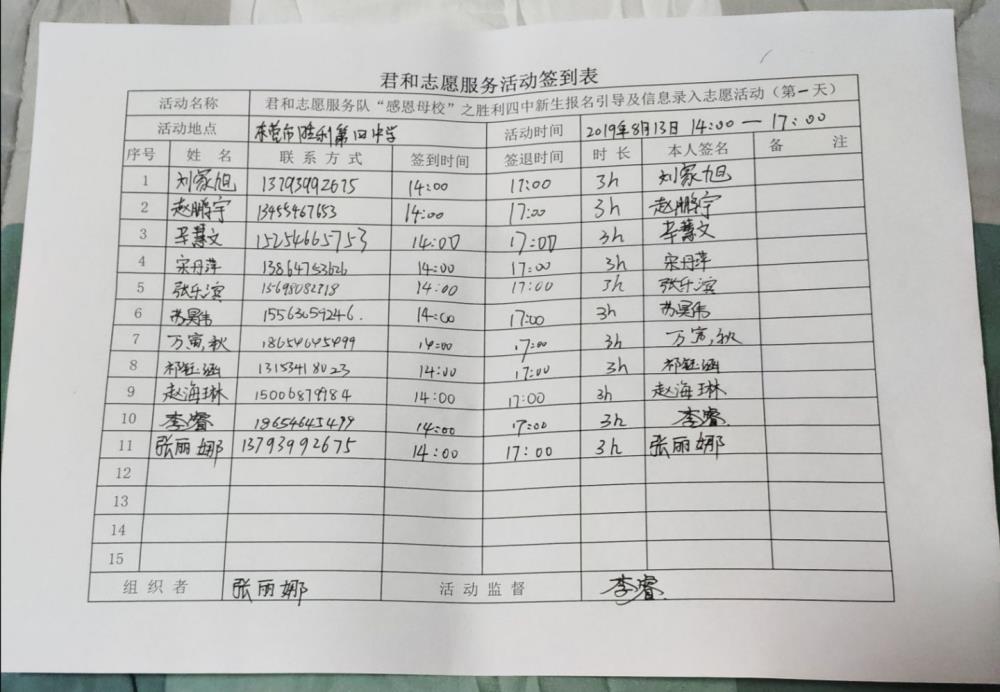 君和志愿服务活动签到表
活动名称 君和志愿服务队“感恩母校”之胜利四中新生报名引导及信息录入志愿活动（第一天）
活动地点 东营市胜利第四中学 活动时间 2019年8月13日 14:00 — 17:00
序号 姓名 联系方式 签到时间 签退时间 时长 本人签名 备注
1 刘家旭 13793992675 14:00 17:00 3h 刘家旭
2 赵鹏宇 13455467653 14:00 17:00 3h 赵鹏宇
3 辛慧文 15254665753 14:00 17:00 3h 辛慧文
4 宋丹萍 13864753626 14:00 17:00 3h 宋丹萍
5 张乐滨 15698082818 14:00 17:00 3h 张乐滨
6 苏昊伟 15563659246. 14:00 17:00 3h 苏昊伟
7 万寅秋 18654645499 14:00 17:00 3h 万寅秋
8 祁钰涵 13153418023 14:00 17:00 3h 祁钰涵
9 赵海琳 15006879984 14:00 17:00 3h 赵海琳
10 李睿 18654645499 14:00 17:00 3h 李睿
11 张丽娜 13793992675 14:00 17:00 3h 张丽娜
12
13
14
15
组织者 张丽娜 活动监督 李睿